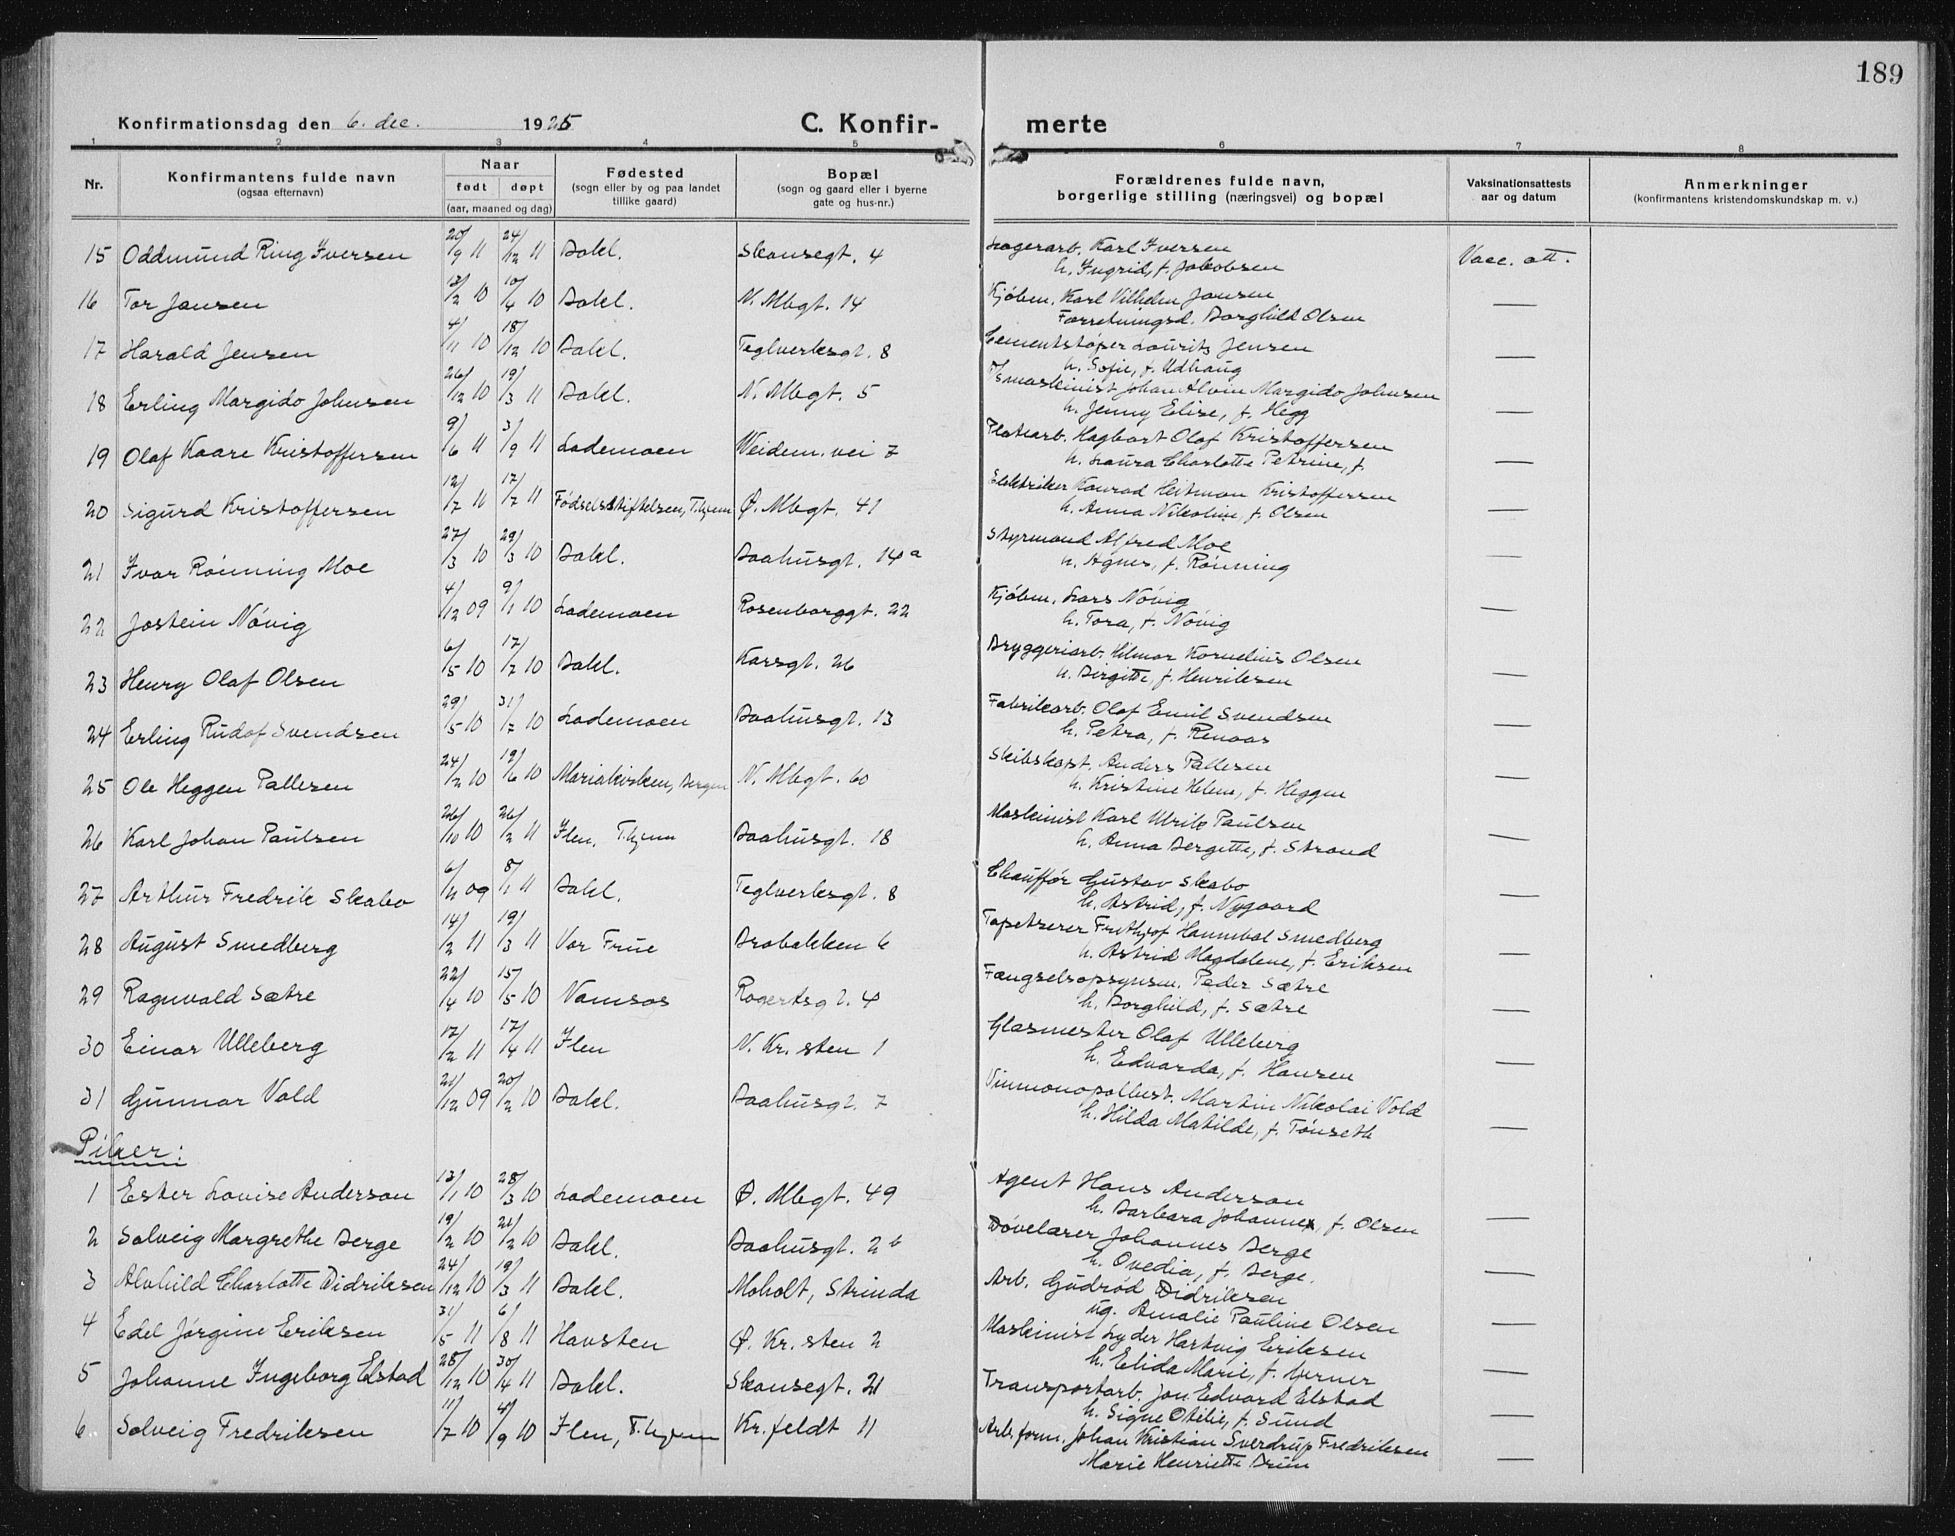 189
Konfirmationsdag den 6. dec. 1925 C. Konfir- merte
1 2 3 4 5 6 7 8
Nr. Konfirmantens fulde navn (ogsaa efternavn) Naar født døpt (aar, maaned og dag) Fødested (sogn eller by og paa landet tillike gaard) Bopæl (sogn og gaard eller i byerne gate og hus-nr.) Forældrenes fulde navn, borgerlige stilling (næringsvei) og bopæl Vaksinationsattests aar og datum Anmerkninger (konfirmantens kristendomskundskap m. v.)
15 Oddmund Ring Iversen 20/9 11 24/12 11 Bakl. Skansegt. 4 Lagerarb. Karl Iversen Vacc. att.
h. Ingrid, f. Jakobsen
16 Tor Jansen 13/2 10 10/4 10 Bakl. N. Mbgt. 14 Kjøbm. Karl Vilhelm Jansen —
Forretningsd. Borghild Olsen
17 Harald Jensen 4/11 10 18/12 10 Bakl. Teglverksgt. 8 Cementstøper Laurits Jensen —
h. Sofie, f. Udhaug
18 Erling Margido Johnsen 26/12 10 19/3 11 Bakl. N. Mbgt. 5 Johan Alvin Margido Johnsen —
h. Jenny Elise, f. Hegg
19 Olaf Kaare Kristoffersen 9/6 11 3/9 11 Lademoen Weidem. vei 7 Platearb. Hagbart Olaf Kristoffersen —
h. Laura Charlotte Petrine, f.
20 Sigurd Kristoffersen 12/7 11 17/7 11 Fødselsstiftelsen, T.hjem Ø. Mbgt. 41 Elektriker Konrad Heitman Kristoffersen —
h. Anna Nikoline, f. Olsen
21 Ivar Rönning Moe 27/3 10 29/3 10 Bakl. Baahusgt. 14a Styrmand Alfred Moe —
h. Agnes, f. Rönning
22 Jostein Növig 4/12 09 9/1 10 Lademoen Rosenborggt. 22 Kjøbm. Lars Növig —
h. Tora, f. Növig
23 Henry Olaf Olsen 6/5 10 17/7 10 Bakl. Karsgt. 26 Bryggeriarb. Hilmar Kornelius Olsen —
h. Birgitte, f. Henriksen
24 Erling Rudof Svendsen 29/5 10 31/7 10 Lademoen Baahusgt. 13 Fabrikarb. Olaf Emil Svendsen —
h. Petra, f. Renaas
25 Ole Heggen Pallesen 24/2 10 19/6 10 Mariakirken, Bergen N. Mbgt. 60 Skibskapt. Anders Pallesen —
h. Kristine Helene, f. Heggen
26 Karl Johan Paulsen 26/10 10 26/2 11 Ilen, T.hjem Baahusgt. 18 Maskinist Karl Ulrik Paulsen —
h. Anna Bergette, f. Strand
27 Arthur Fredrik Skabo 6/11 09 8/1 11 Bakl. Teglverksgt. 8 Chauffør Gustav Skabo —
h. Astrid, f. Nygaard
28 August Smedberg 14/2 11 19/3 11 Vor Frue Brabakken 6 Tapetserer Frithjof Hannibal Smedberg —
h. Astrid Magdalene, f. Eriksen
29 Ragnvald Sætre 22/4 10 15/5 10 Namsos Rogertsgt. 4 Fængselsopsynsm. Peder Sætre —
h. Borghild, f. Sætre
30 Einar Ulleberg 17/2 11 17/4 11 Ilen N. Kr. sten 1 Glasmester Olaf Ulleberg —
h. Edvarda, f. Hansen
31 Gunnar Vold 21/12 09 20/2 10 Bakl. Baahusgt. 7 Vinmonopolbest. Martin Nikolai Vold —
h. Hilda Matilde, f. Tönseth
Piker:
1 Ester Lovise Anderson 13/1 10 28/3 10 Lademoen Ø. Mbgt. 49 Agent Hans Anderson —
h. Barbara Johanne, f. Olsen
2 Solveig Margrethe Berge 19/2 10 21/2 10 Bakl. Baahusgt. 2b Døvelærer Johannes Berge —
h. Ovedia, f. Berge.
3 Alvhild Charlotte Didriksen 24/12 10 19/3 11 Bakl. Moholt, Strinda Arb. Gudrød Didriksen —
ug. Amalie Pauline Olsen
4 Edel Jørgine Eriksen 31/5 11 6/8 11 Havsten Ø. Kr. sten 2 Maskinist Lyder Hartvig Eriksen —
h. Elida Marie, f. Gjerner
5 Johanne Ingeborg Elstad 28/12 10 30/4 11 Bakl. Skansegt. 21 Transportarb. Jon Edvard Elstad —
h. Signe Otilie, f. Sund
6. Solveig Fredriksen 11/7 10 4/9 10 Ilen, T.hjem Kr.feldt 11 Arb.form. Johan Kristian Sverdrup Fredriksen —
Marie Henriette Brun